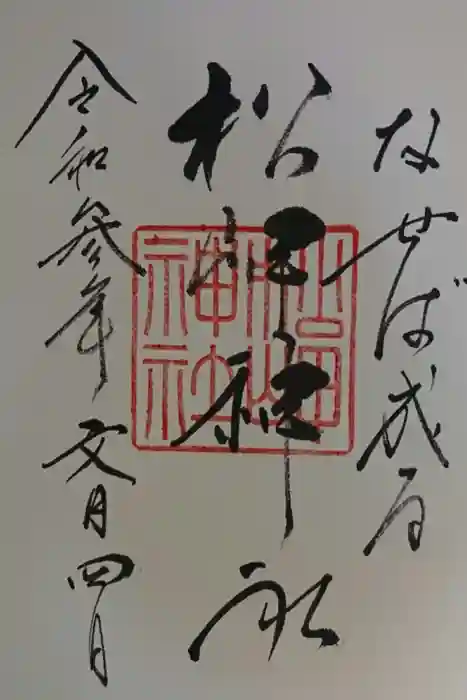 なせば成る
松岬神社
令和参年 文月四日